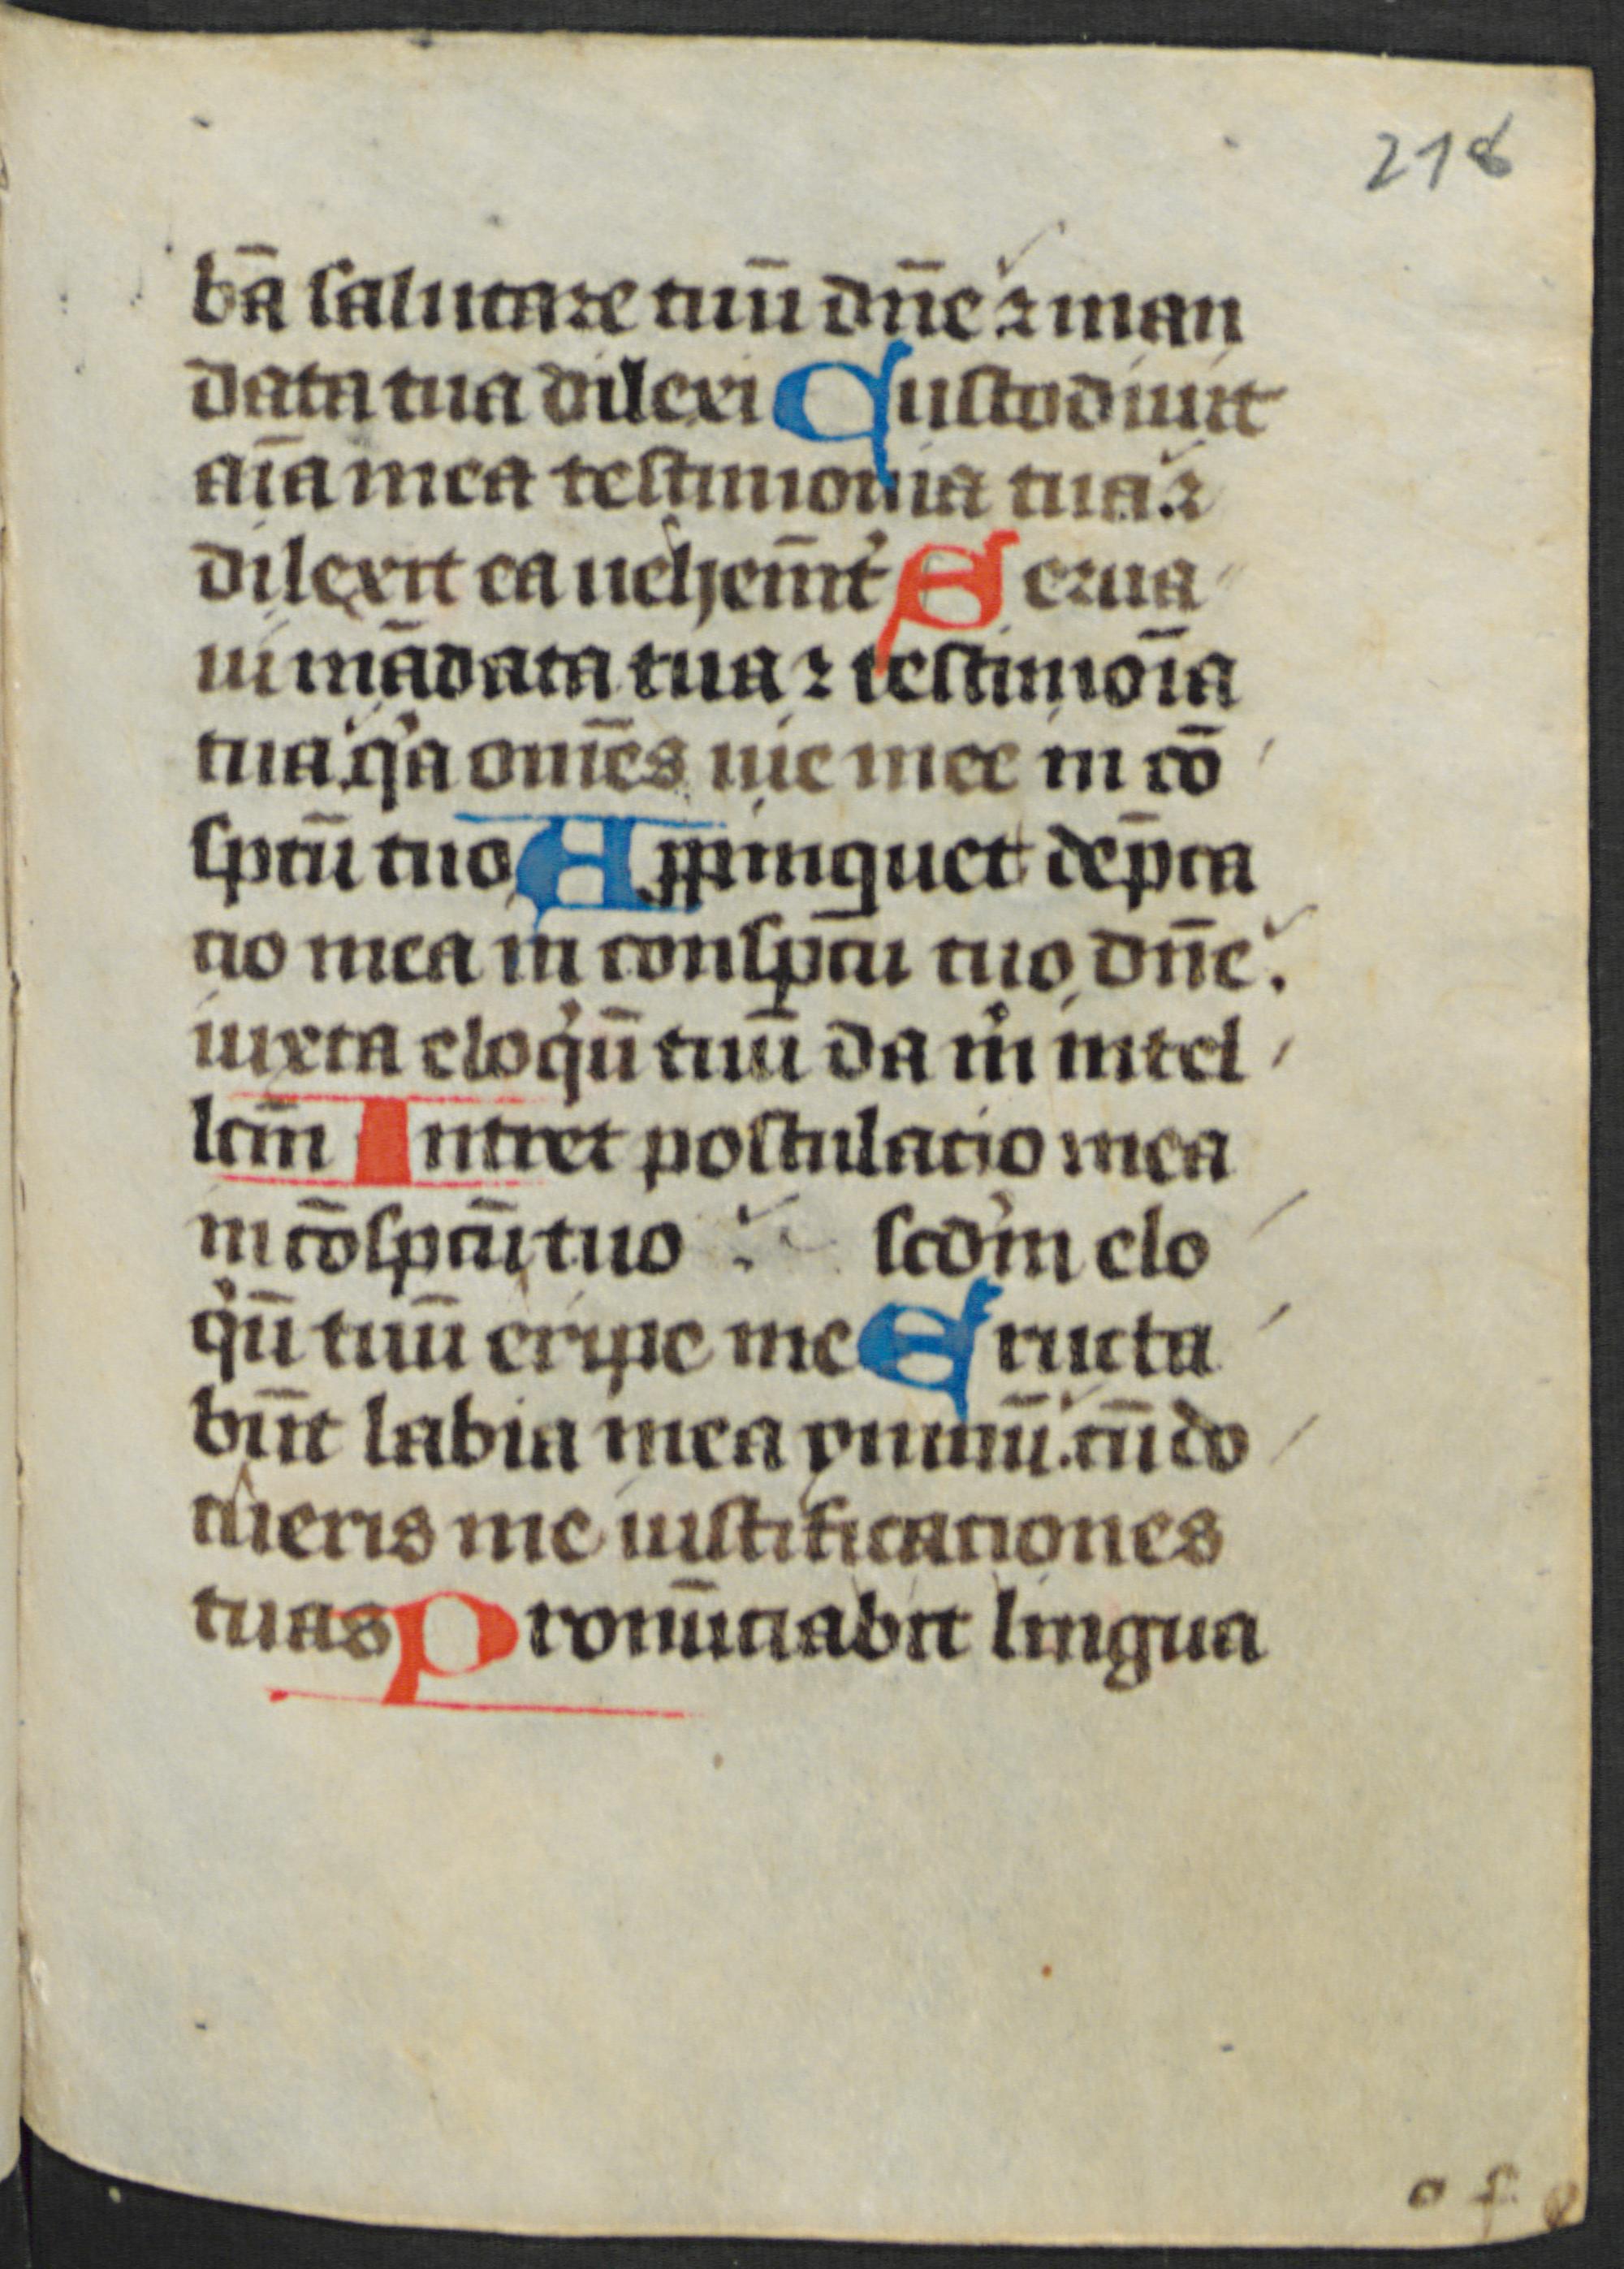 218
bā salutare tuū dn̄e ⁊ man
data tua dilexi Custodiuit
aīa mea testimonia tua. ⁊
dilexit ea uehem̄t͛ Serua
ui mādata tua ⁊ testimoīa
tua. qͥa om̄es uie mee in cō
spc̄tu tuo Appinquet dep̄ca
cio mea in consp̄ctu tuo dn̄e.
iuxta eloqͥū tuū da mͥ intel
lcm̄ Intret postulacio mea
in cōspc̄tu tuo scd'm elo
qͥū tuū eripe me Eructa
būt labia mea ymnū. cū do
cueris me iustificaciones
tuas Pronūciabit lingua